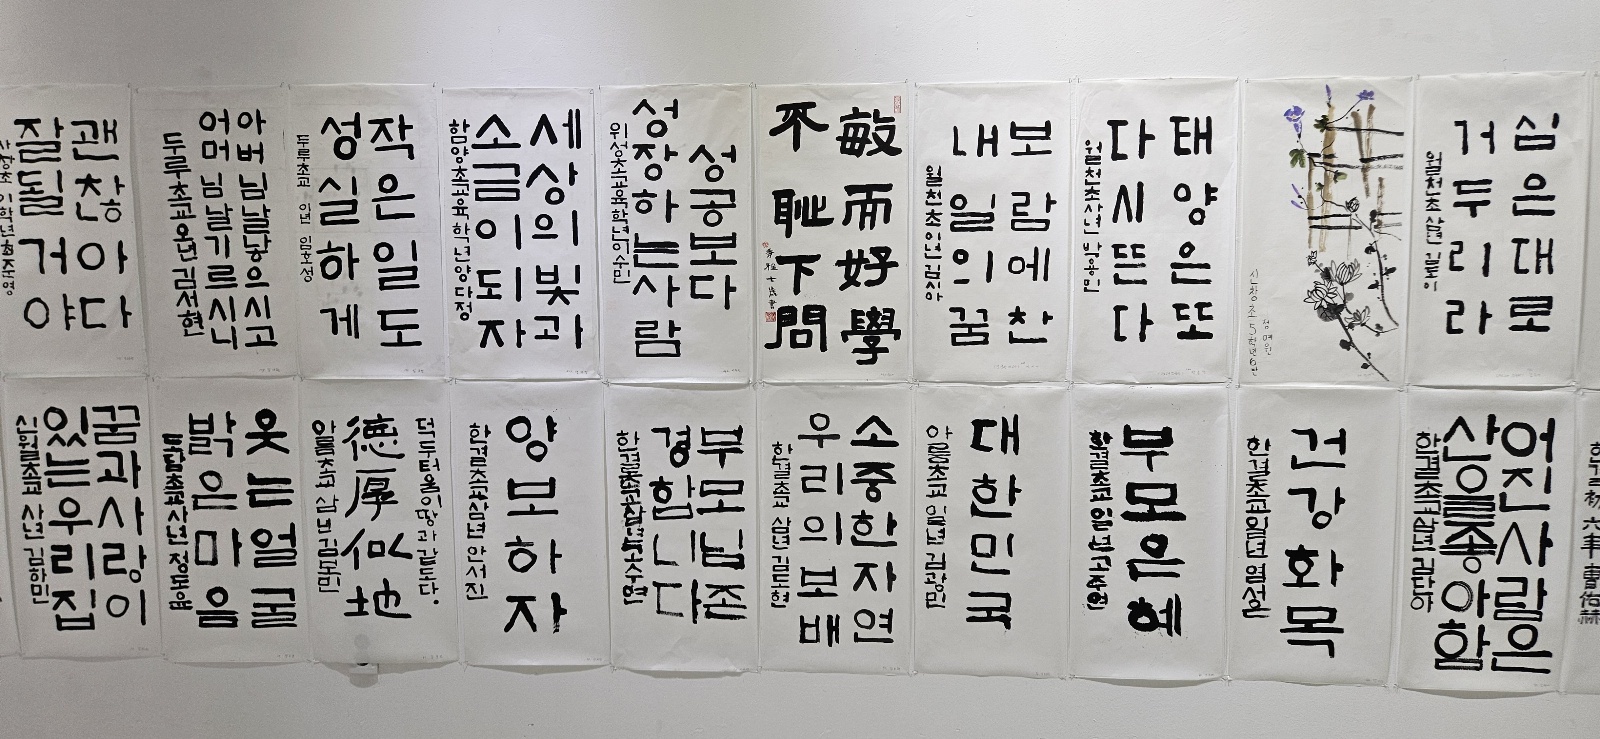 괜찮아
잘 될 거야
아버님 날 낳으시고
어머님 날 기르시니
두루초교 오년 김서현
작은 일도
성실하게
두루초교 이년 임호성
세상의 빛과
소금이 되자
함양초교 육학년 양다정
성공보다
성장하는 사람
위성초교 육학년 이수민
敏而好學
不恥下問
보람에 찬
내일의 꿈
월천초 이년 김시아
태양은 또
다시 뜬다
월천초 사년 박용민
신창초 5학년 6반
정예원
심은 대로
거두리라
월천초 삼년 김도이
꿈과 사랑이
있는 우리 집
신원초교 사년 김하민
웃는 얼굴
밝은 마음
사년 정도윤
덕 두터움이 땅과 같도다.
德厚似地
아름초교 삼년 김로빈
양보하자
한결초교 삼년 안서진
부모님 존
경합니다
소중한 자연
우리의 보배
한결초교 삼년 김도현
대한민국
아름초교 일년 김광민
부모 은혜
한결초교 일년 고준원
건강 화목
한결초교 일년 염서은
어진 사람은
산을 좋아함
한결초교 삼년 김단아